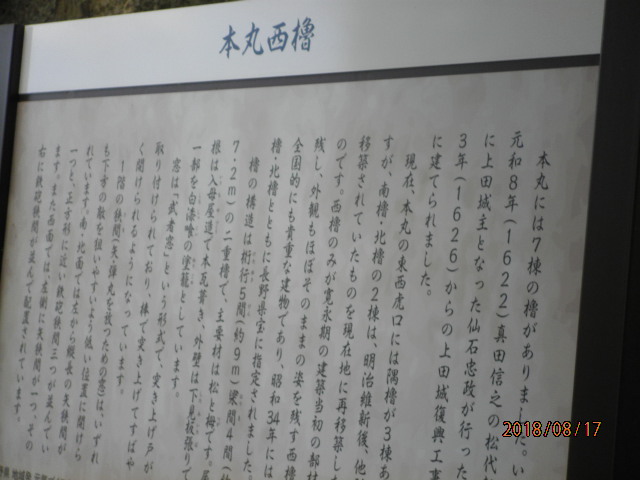 本丸西櫓
本丸には7棟の櫓がありました。い
元和8年(1622)真田信之の松代
に上田城主となった仙石忠政が行った
3年(1626)からの上田城復興工事
に建てられました。
現在、本丸の東西虎口には隅櫓が3棟あ
すが、南櫓・北櫓の2棟は、明治維新後、他
移築されていたものを現在地に再移築した
のです。西櫓のみが寛永期の建築当初の部材
残し、外観もほぼそのままの姿を残す西櫓
全国的にも貴重な建物であり、昭和34年には
櫓・北櫓とともに長野県宝に指定されました。
櫓の構造は桁行5間(約9m)梁間4間(約
7.2m)の二重櫓で、主要材は松と栂です。屋
根は入母屋造で本瓦葺き、外壁は下見板張りで
一部を白漆喰の塗籠としています。
窓は「武者窓」という形式で、突き上げ戸が
取り付けられており、棒で突き上げてすばや
く開けられるようになっています。
1階の狭間(矢・弾丸を放つための窓)は、いずれ
も下方の敵を狙いやすいよう低い位置に開けら
れています。南・北面では左から縦長の矢狭間が
一つと、正方形に近い鉄砲狭間三つが並んでい
ます。また西面では、左側に矢狭間が一つ、その
右に鉄砲狭間が並んで配置されています。
2018/08/17